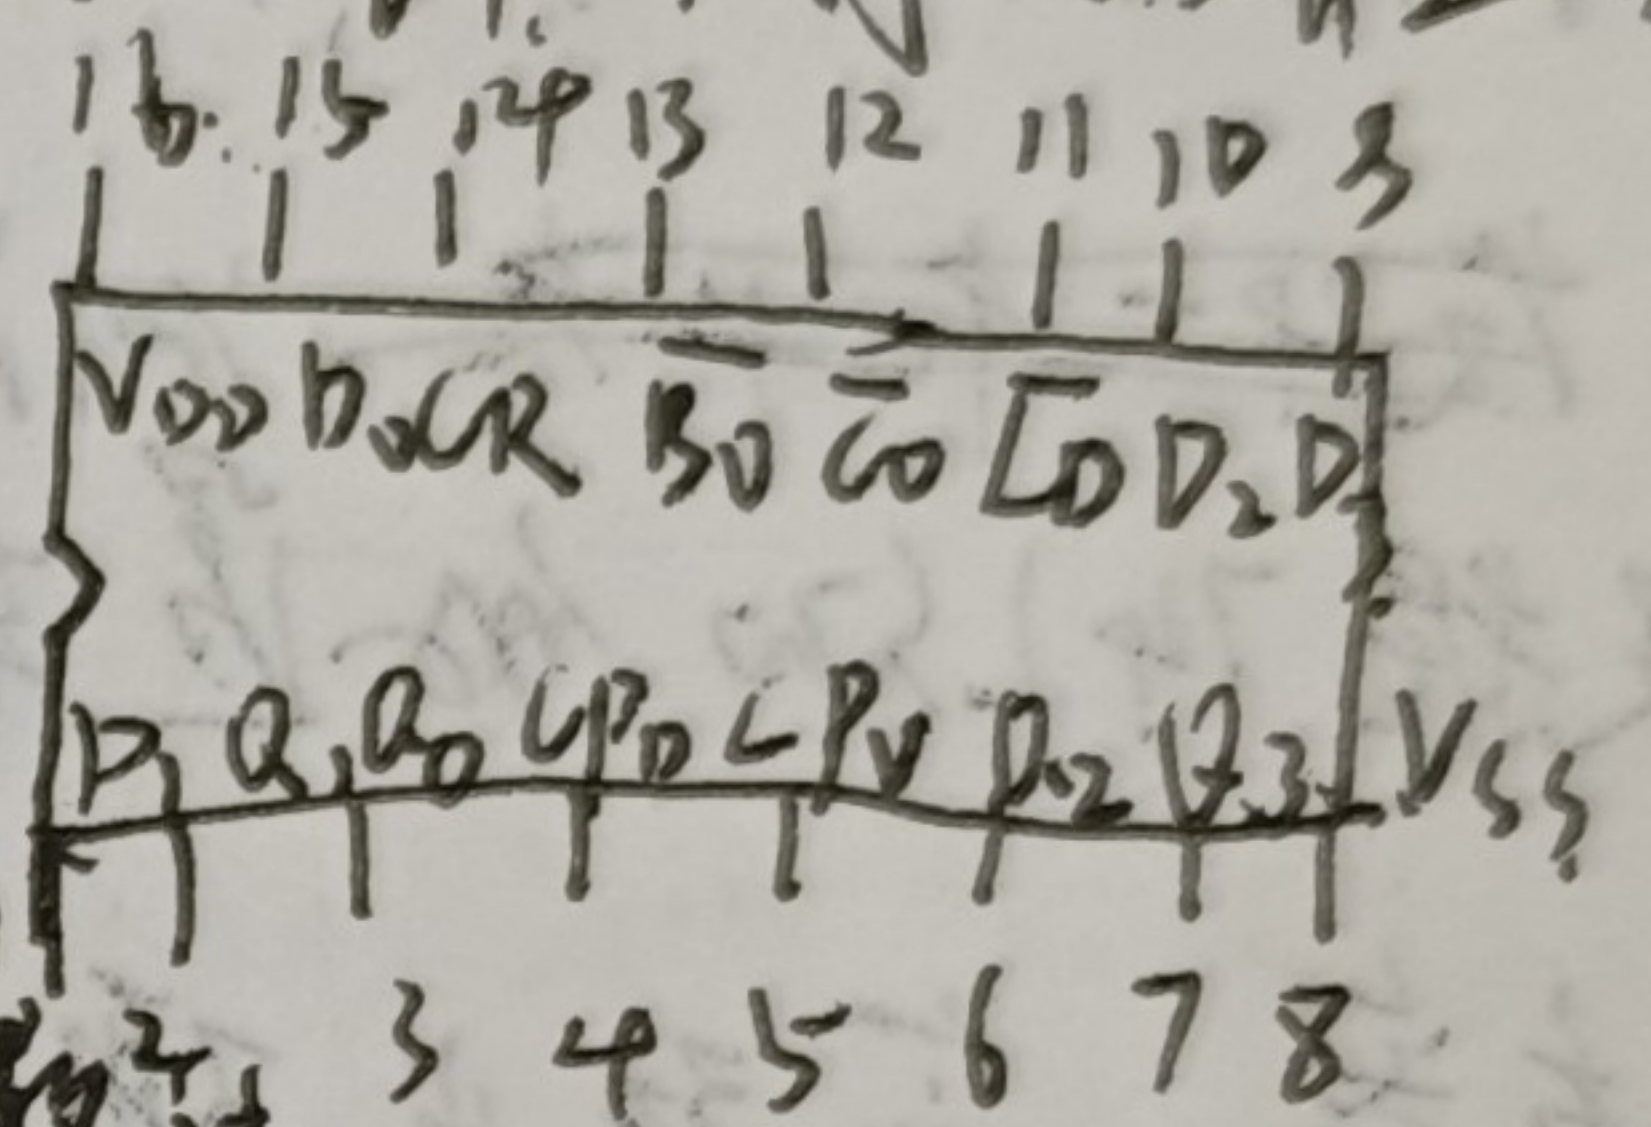 16. 15 14 13 12 11 10 9
VDD D0 CR B̅O̅ C̅O̅ L̅D̅ D2 D3
D1 Q1 Q0 CPD CPU Q2 Q3 VSS
2 3 4 5 6 7 8